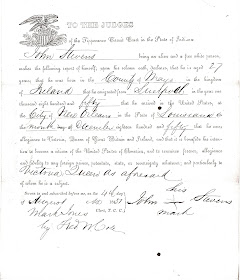 TO THE JUDGES
of the Tippecanoe Circuit Court in the State of Indiana
John Stevens being an alien and a free white person,
makes the following report of himself, upon his solemn oath, declares, that he is aged 27
years; that he was born in the County of Mayo in the kingdom
of Ireland that he emigrated from Liverpool in the year one
thousand eight hundred and fifty that he arrived in the United States, at
the City of New Orleans in the State of Louisiana in
the month of December eighteen hundred and fifty that he owes
allegiance to Victoria, Queen of Great Britain and Ireland, and that it is his intention
to become a citizen of the United States of America, and to renounce forever, allegiance
and fidelity to any foreign prince, potentate, state, or sovereignty whatever, and particularly to
Victoria Queen as aforesaid
of whom he is a subject.
Sworn to and subscribed before me, on the 4th day
of August
his
John Stevens
mark
Mark Jones Clerk, T. C. C.
by